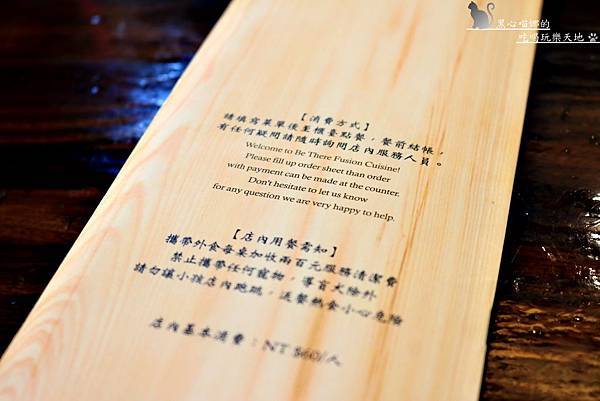 黑心喵娜的
吃喝玩樂天地
【消費方式】
請填寫菜單後至櫃臺點餐，餐前結帳，
有任何疑問請隨時詢問店內服務人員。
Welcome to Be There Fusion Cuisine!
Please fill up order sheet than order
with payment can be made at the counter.
Don't hesitate to let us know
for any question we are very happy to help.
【店內用餐需知】
攜帶外食每桌加收兩百元服務清潔費
禁止攜帶任何寵物，導盲犬除外
請勿讓小孩店內跑跳，送餐熱食小心危險
店內基本消費：NT $60/人